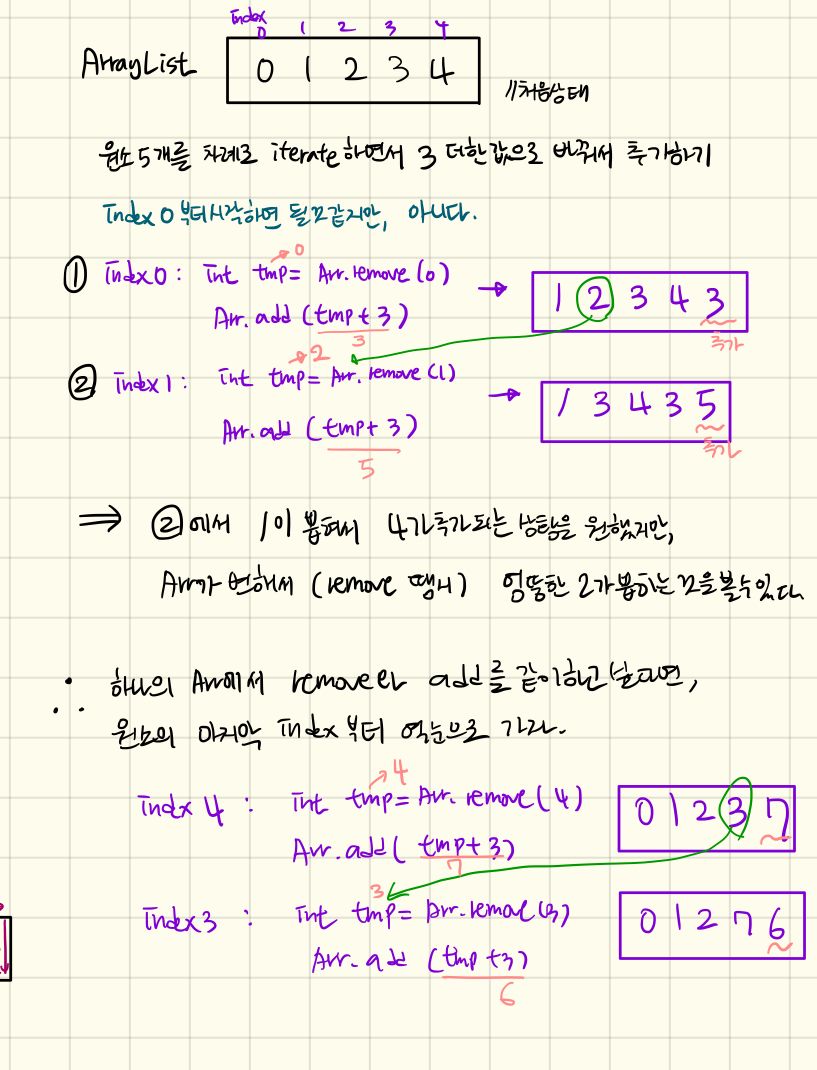 Index
0 1 2 3 4
ArrayList 0 1 2 3 4
//처음상태
원소 5개를 차례로 iterate하면서 3 더한값으로 바꿔서 추가하기
Index 0부터시작하면 될꺼같지만, 아니다.
0
① Index0 : Int tmp = Arr.remove(0) → 1 2 3 4 3
Arr.add (tmp + 3)
3
추가
2
② Index1 : Int tmp = Arr.remove(1) → 1 3 4 3 5
Arr.add (tmp + 3)
5
추가
⇒ ②에서 1이 뽑혀서 4가추가되는 상황을 원했지만,
Arr가 변해서 (remove 땜시) 엉뚱한 2가뽑히는꼬을볼수있다
∴ 하나의 Arr에서 remove와 add를 같이하고싶다면,
원소의 마지막 Index부터 역순으로 가라.
4
Index 4 : Int tmp = Arr.remove(4) 0 1 2 3 7
Arr.add( tmp + 3)
7
3
Index3 : Int tmp = Arr.remove(3) 0 1 2 7 6
Arr.add (tmp +3)
6